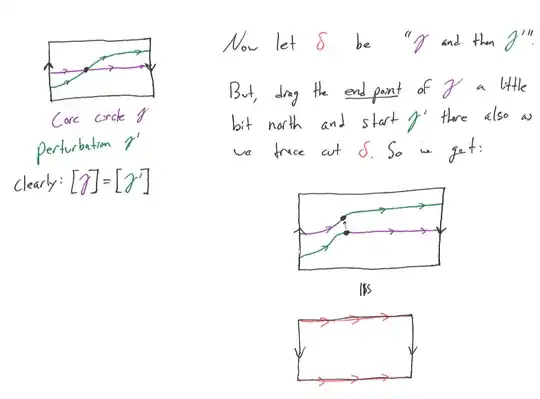 Core circle γ
Perturbation γ'
Clearly: [γ] = [γ']
Now let δ be "γ and then γ'".
But, drag the end point of γ a little
bit north and start γ' there also as
we trace out δ. So we get: